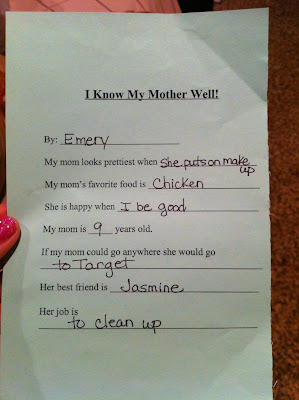 I Know My Mother Well!
By: Emery
My mom looks prettiest when She puts on make
up
My mom's favorite food is Chicken
She is happy when I be good
My mom is 9 years old.
If my mom could go anywhere she would go
to Target
Her best friend is Jasmine
Her job is
to clean up